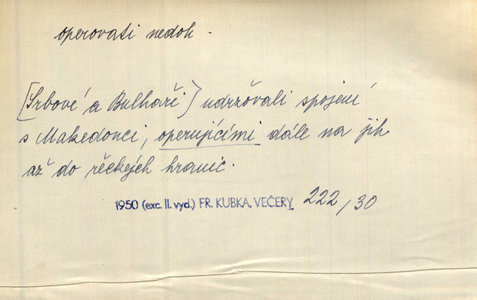 operovati nedok.
[Srbové a Bulhaři] udržovali spojení
s Makedonci, operujícími dále na jih
až do řeckých hranic.
1950 (exc. II. vyd.) FR. KUBKA, VEČERY 222/30